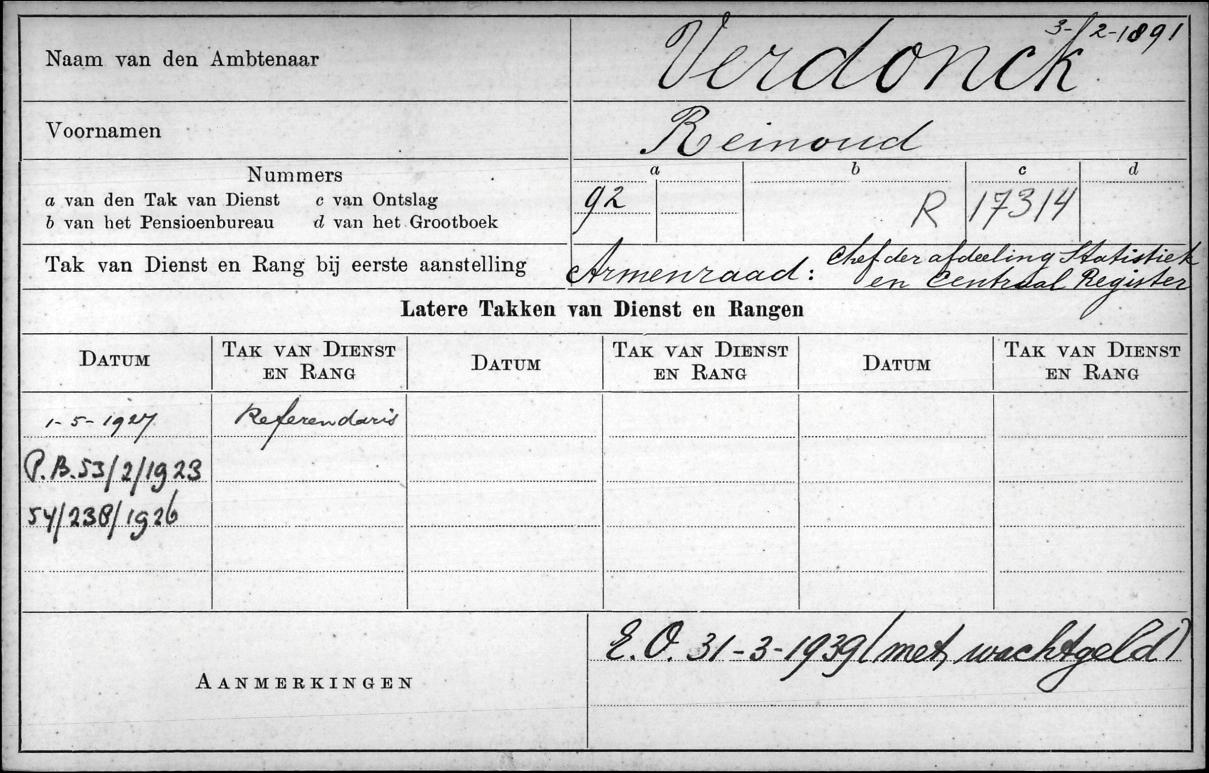 3-/2-1891
Naam van den Ambtenaar Verdonck
Voornamen Reinoud
Nummers
a van den Tak van Dienst c van Ontslag
b van het Pensioenbureau d van het Grootboek
a b c d
92 R 17314
Tak van Dienst en Rang bij eerste aanstelling Armenraad: Chef der afdeeling Statistiek
en Centraal Register
Latere Takken van Dienst en Rangen
DATUM TAK VAN DIENST EN RANG DATUM TAK VAN DIENST EN RANG DATUM TAK VAN DIENST EN RANG
1-5-1927 Referendaris
P.B.53/2/1923
54/238/1926
E.O. 31-3-1939 (met wachtgeld)
AANMERKINGEN